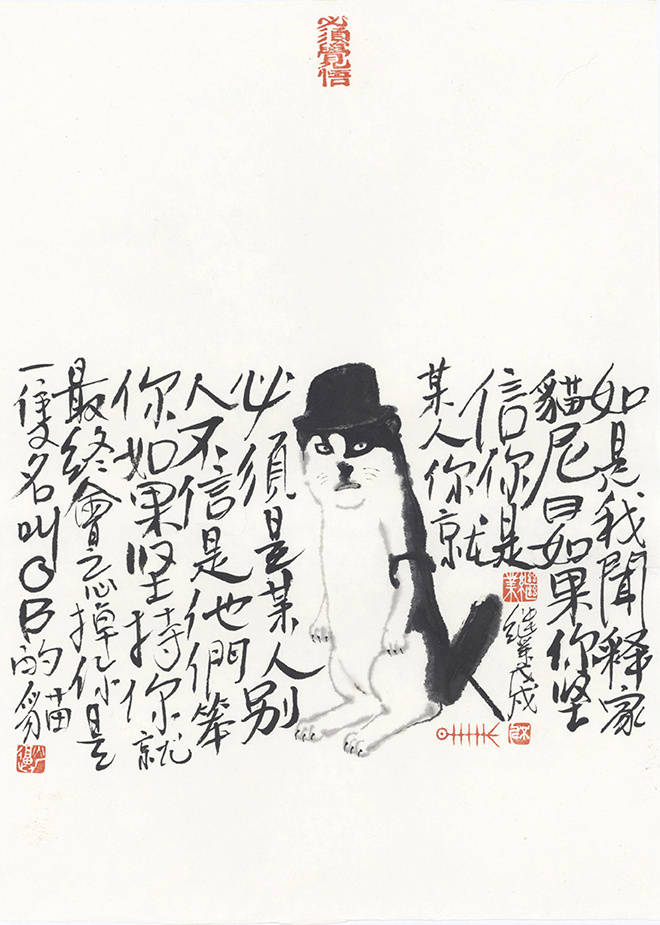 必須覺悟
如是我聞釋家
貓尼曰如果你坚
信你是
某人你就
必須是某人别
人不信是他們笨
你如果坚持你就
最终會忘掉你是
一隻名叫OB的貓
继業戊戌